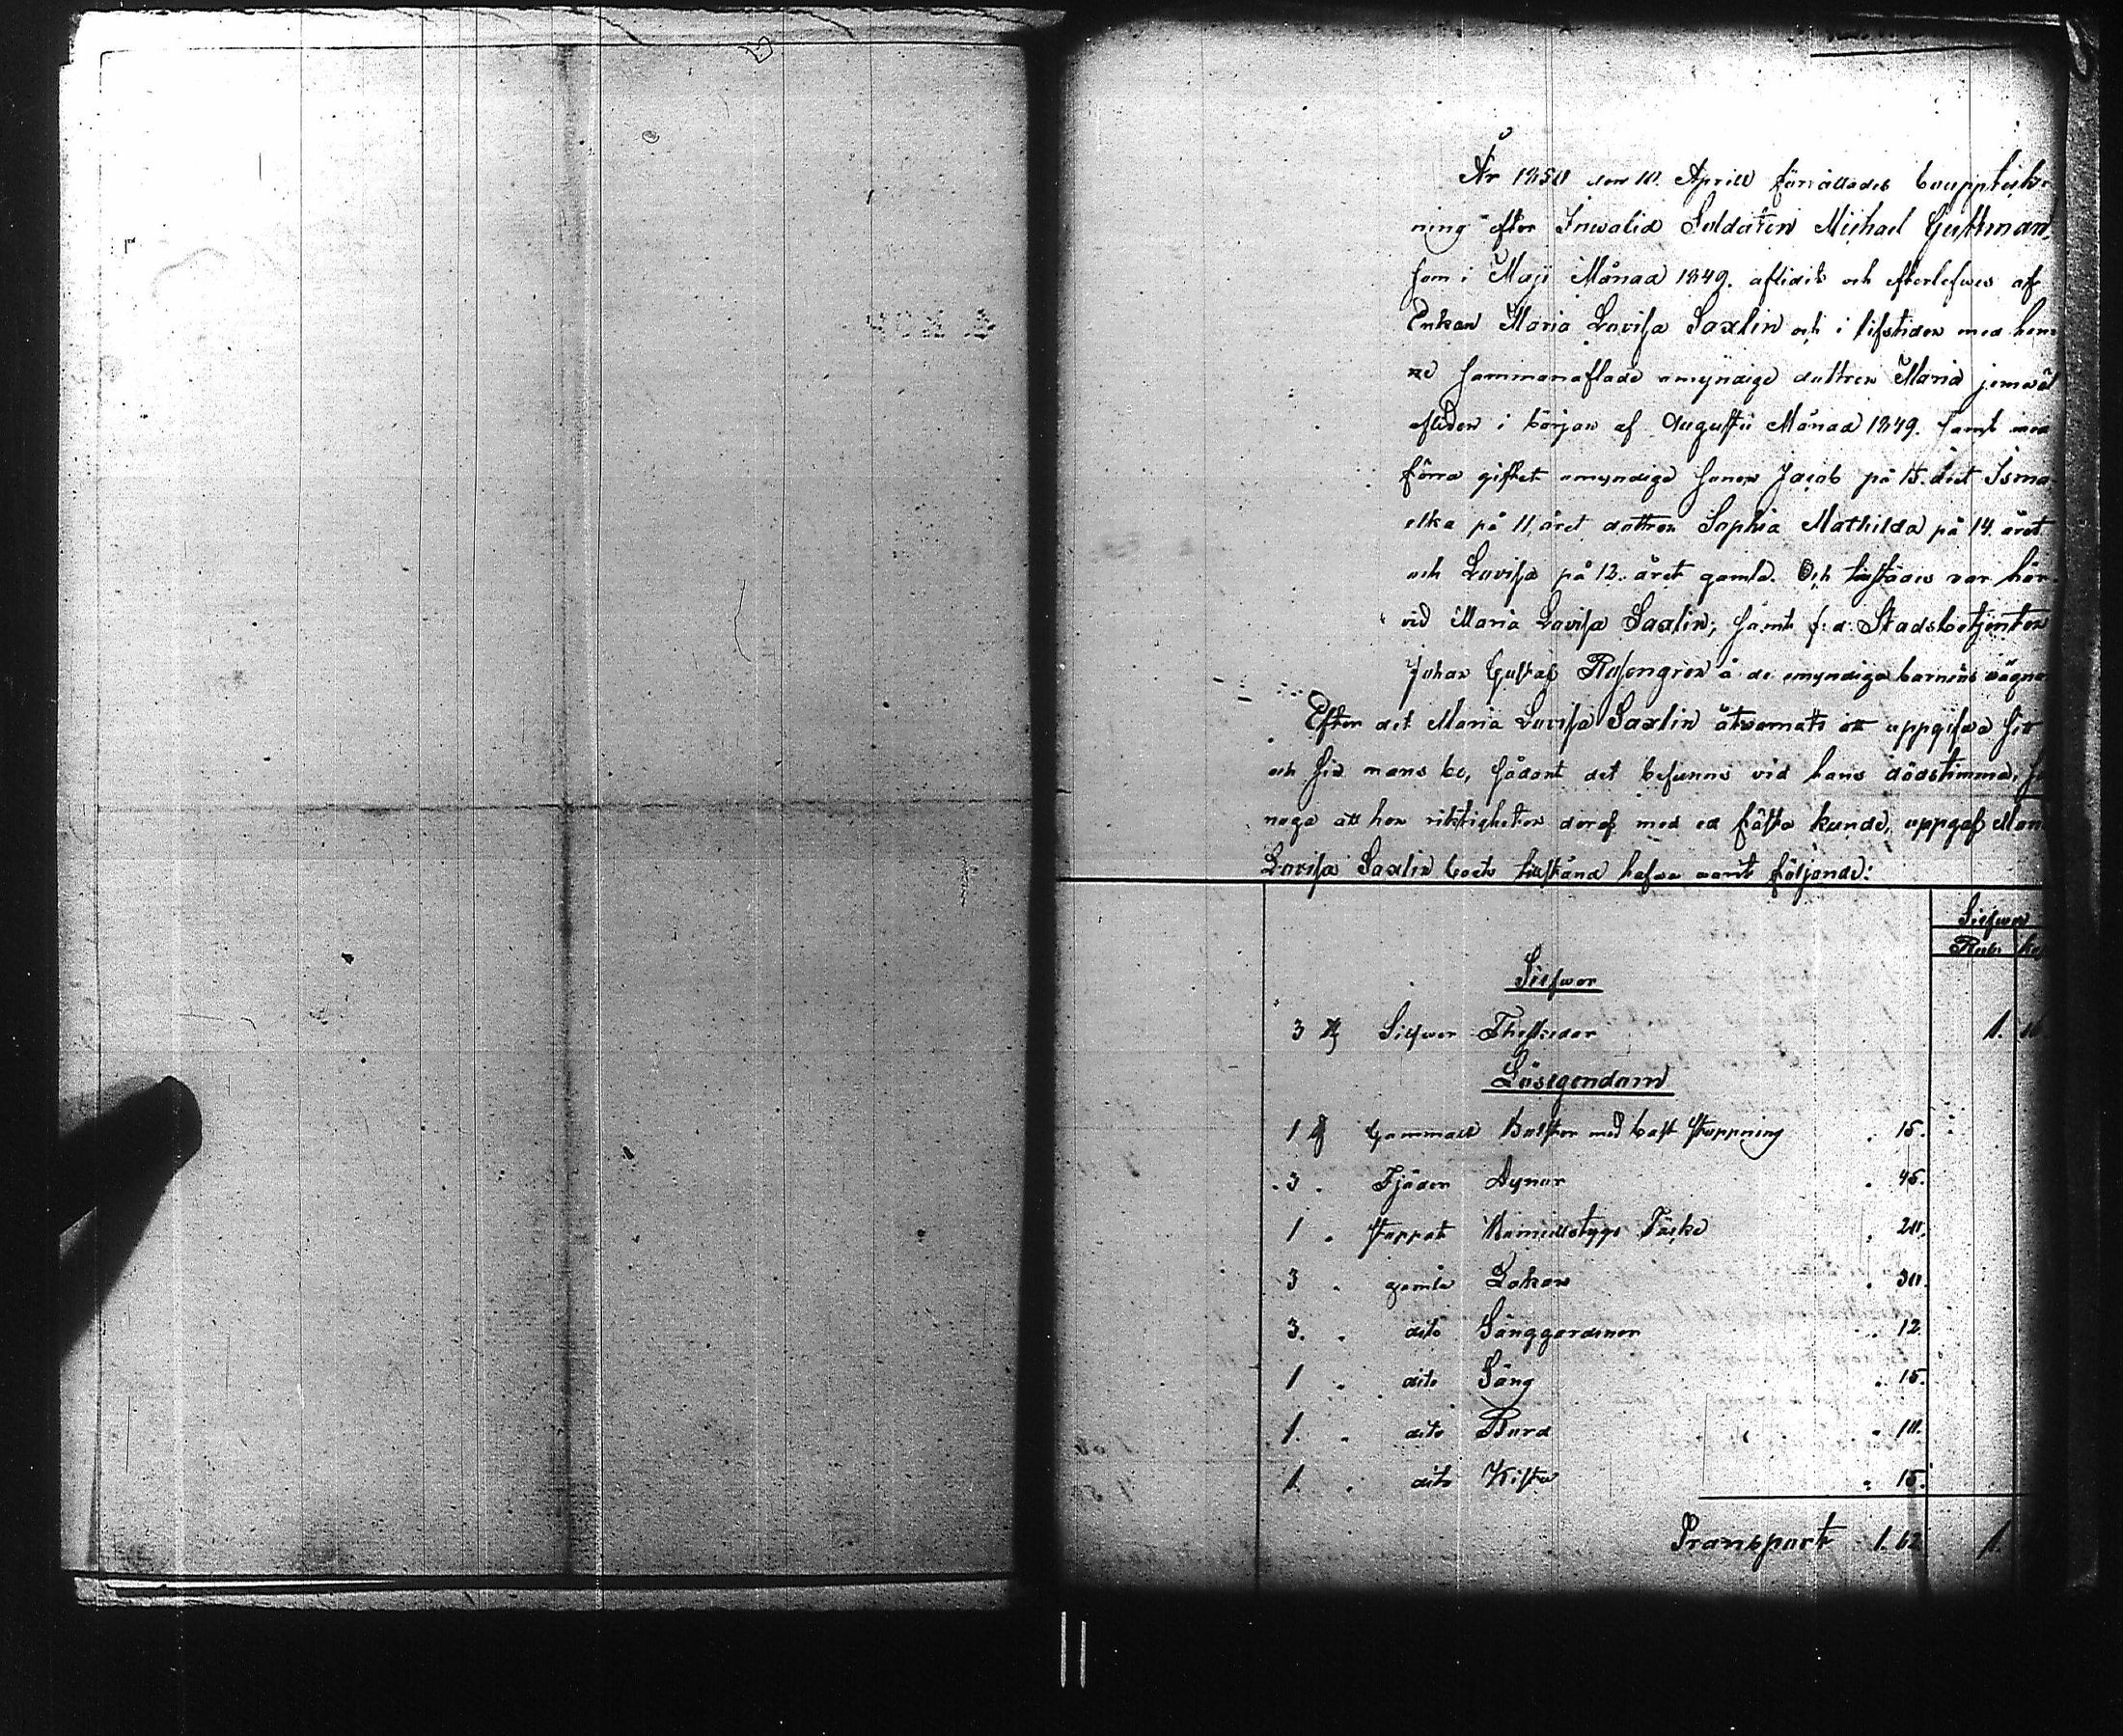 År 1850 den 10. Aprill förrättades bouppteck-
ning efter Inwalid Soldaten Michael Guttman,
som i Maji Månad 1849. aflidit och efterlefwes af
Enkan Maria Lovisa Saxlin och i lifstiden med hen-
ne sammanaflade omyndige dottren Maria jemwäl
afliden i början af Augustii Månad 1849. samt med
förra giftet omyndige sonen Jacob på 15. året Isma-
elka på 11. året dottren Sophia Mathilda på 14. året
och Lovisa på 12. året gamla. Och tillstädes var här-
vid Maria Lovisa Saxlin; samt f. d. Stadsbetjenten
Johan Gustaf Rosengren å de omyndiga barnens vägnar
Efter det Maria Lovisa Saxlin åtvarnats att uppgifwa sit
och sin mans bo, sådant det befunnes vid hans dödstimma, så
noga att hon riktigheten deraf med ed fästa kunde, uppgaf Maria
Lovisa Saxlin boets tillstånd hafva varit följande:
Silfwer
Rub. kop
Silfwer
3 st Silfwer Theskedar 1.
Lösegendom
1 st Gammalt Bolster med bast stoppning . 15.
3 . Fjäder Dynor . 45.
1 . stoppat Bomullstygs Täcke . 20.
3 . gamla Lakan . 30.
3. . dito Sänggardiner . 12
1 . dito Säng . 15.
1. . dito Bord . 10.
1. . dito Kista . 15.
Transport 1. 62 1.